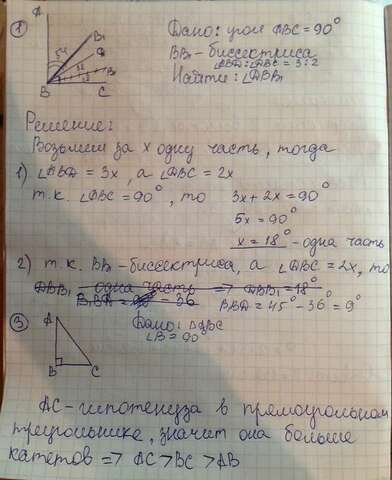 1 Дано: угол ABC=90°
BB₁-биссектриса
∠BBA:∠ABC=3:2
Найти: ∠ABB₁
A
B₁
54
B C
Решение:
Возьмем за x одну часть, тогда
1) ∠ABA = 3x, а ∠ABC = 2x
т.к. ∠ABC=90°, то 3x+2x=90°
5x=90°
x=18° - одна часть
2) т.к. BB₁-биссектриса, а ∠ABC=2x, то
ABB₁ одна часть => ABB₁=18°
B₁BA=90°-36 BBA=45°-36°=9°
3 A Дано: △ABC
∠B=90°
B C
AC-гипотенуза в прямоугольном
треугольнике, значит она больше
катетов => AC>BC>AB